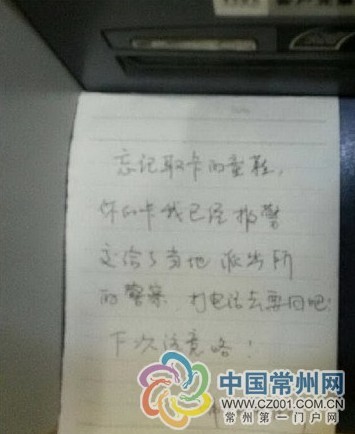 忘记取卡的童鞋,
你的卡我已经报警
交给了当地派出所
的警察 打电话去要回吧!
下次注意咯!
中国常州网
WWW.CZ001.COM.CN
常州第一门户网